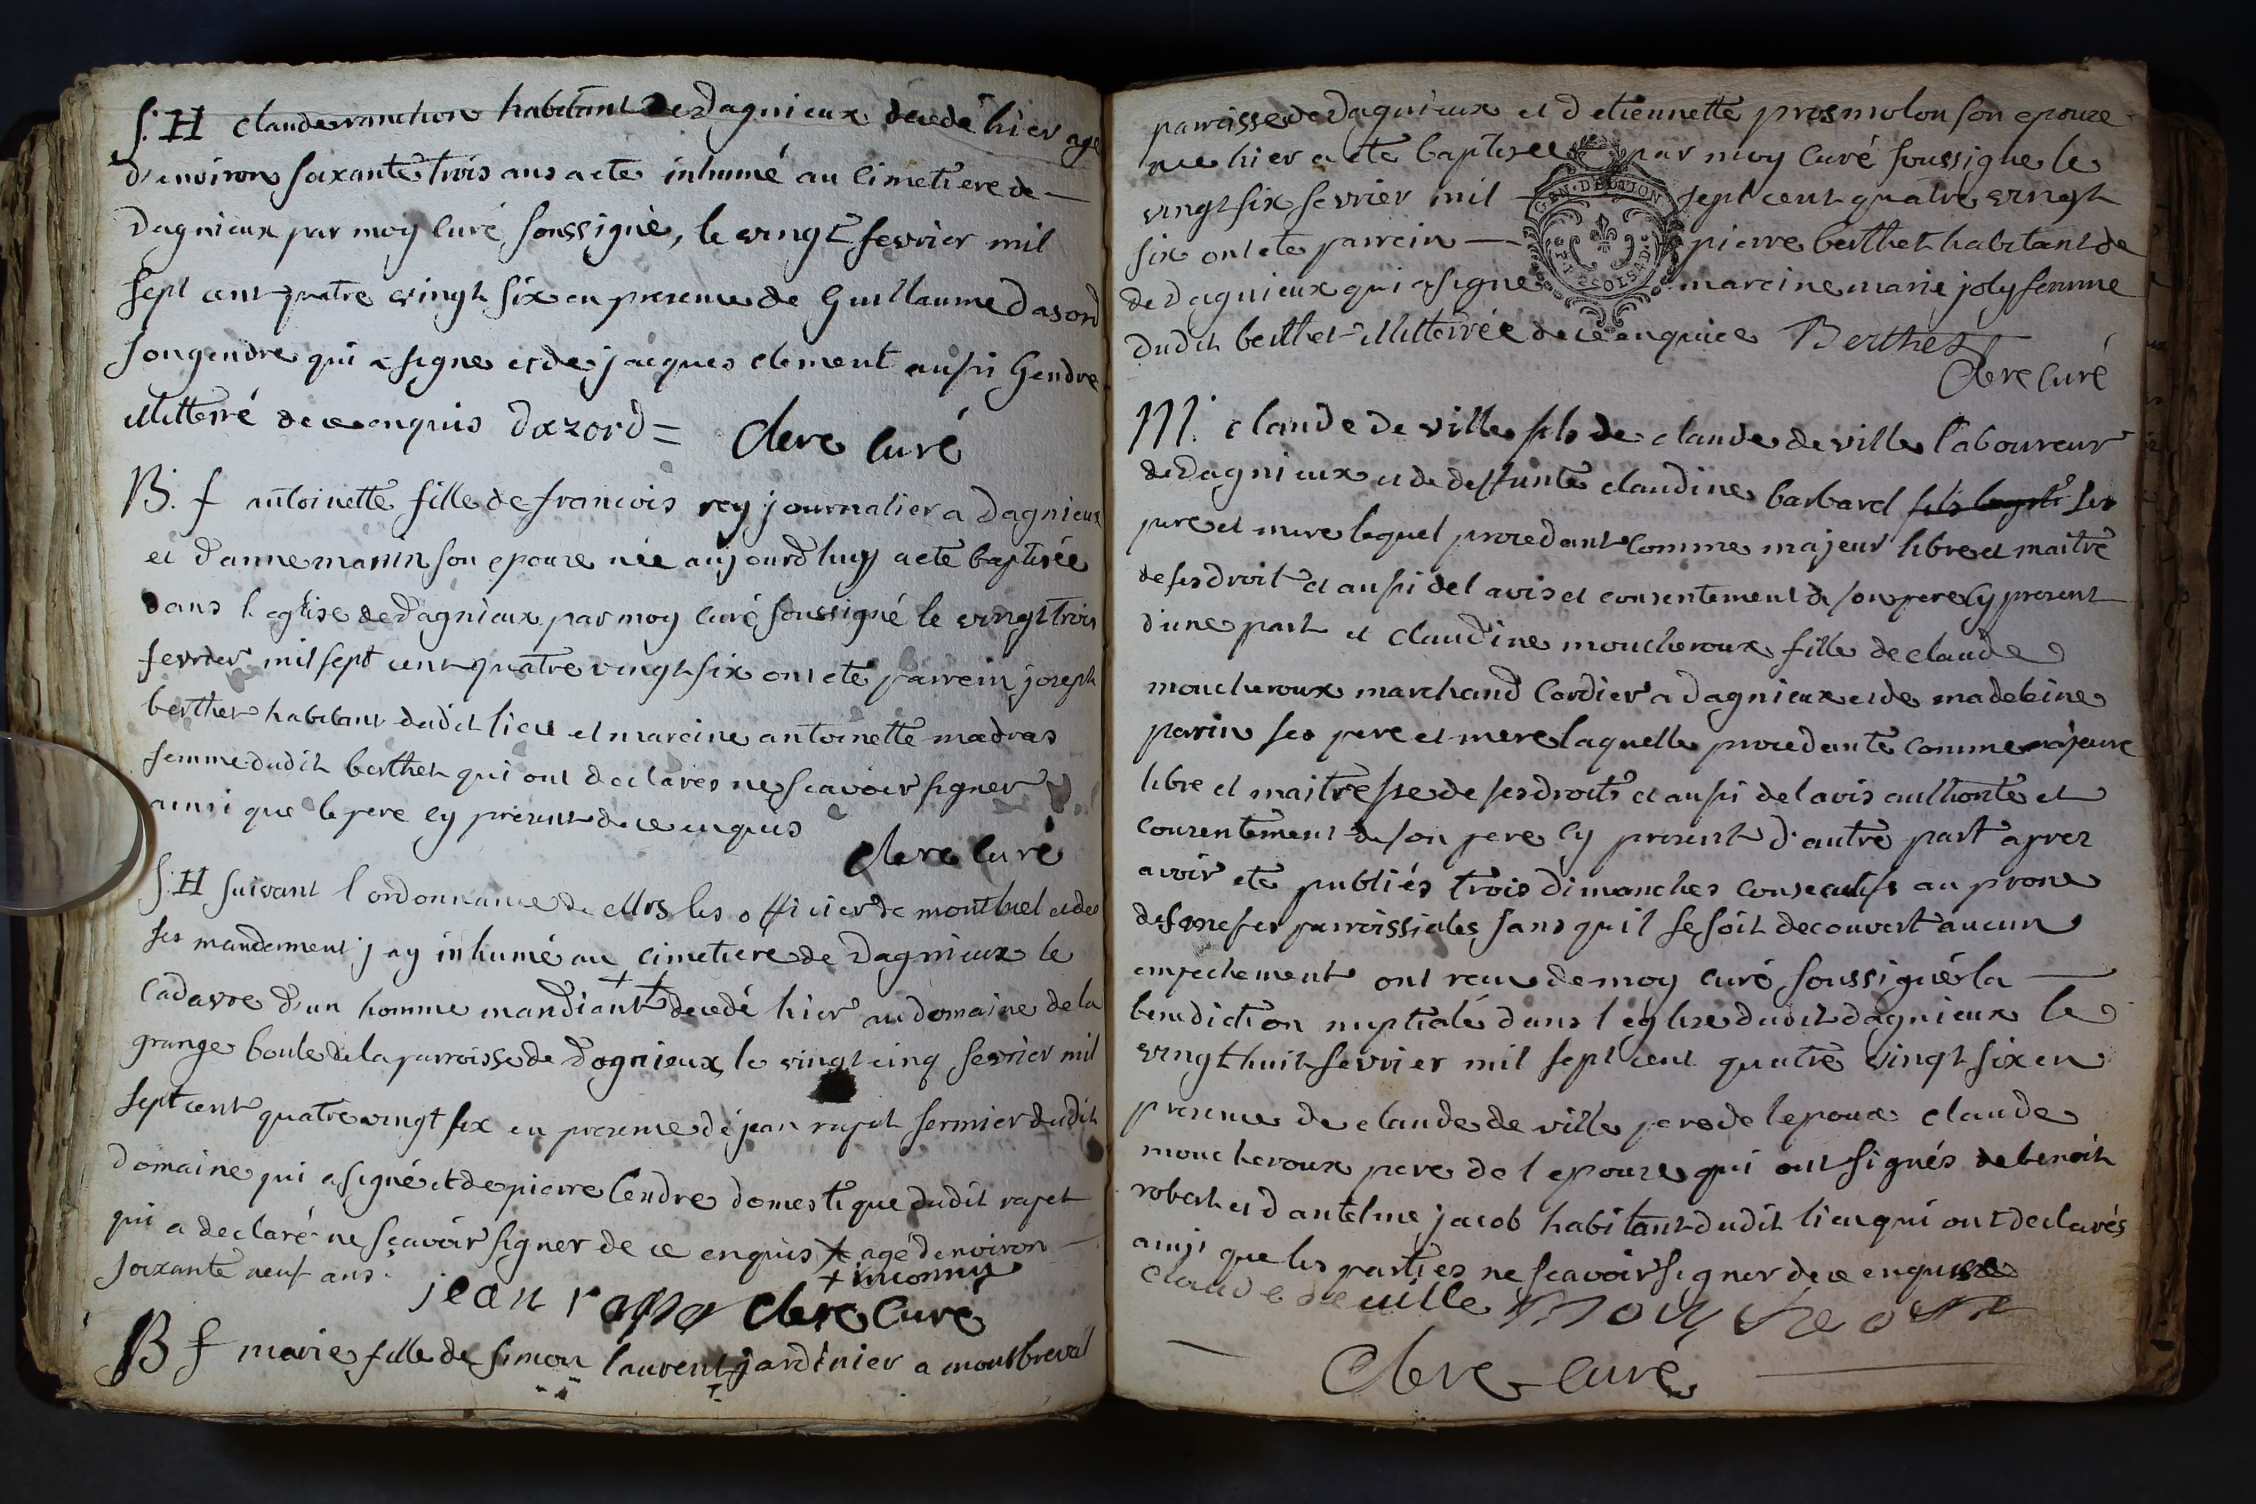 S. H claude ranchon habitant de Dagnieux decedé hier agé
d'environ soixante trois ans a ete inhumé au cimetiere de
Dagnieux par moy curé soussigné, le vingt fevrier mil
sept cent quatre vingt six en presence de Guillaume Dasord
son gendre qui a signé et de jacques clement aussi Gendre
illitterré de ce enquis Dazord = Clere curé
B. f antoinette fille de francois rey journalier a Dagnieux
et d'anne marin son epouze née aujourd'huy a ete baptisée
dans l'eglise de Dagnieux par moy curé soussigné le vingt trois
fevrier mil sept cent quatre vingt six ont ete parrein joseph
berthet habitant dudit lieu et mareine antoinette madras
femme dudit berthet qui ont declarés ne scavoir signer
ainsi que le pere cy present de ce enquis
Clere curé
S. H suivant l'ordonnance de Mrs les officier de montluel et de
ses mandement j'ay inhumé au cimetiere de Dagnieux le
cadavre d'un homme mandiant ++ decedé hier au domaine de la
grange boule de la parroisse de Dagnieux, le vingt cinq fevrier mil
sept cent quatre vingt six en presence de jean rapet fermier dudit
domaine qui a signé et de pierre Cendre domestique dudit rapet
qui a declaré ne sçavoir signer de ce enquis + agé d'environ
soixante neuf ans. + inconnu
jean rapet Clere Curé
B f marie fille de simon laurent jardinier a montbreval
parroisse de Dagnieux et d'etiennette prosmolon son epouze
née hier a ete baptisée par moy curé soussigné le
vingt six fevrier mil sept cent quatre vingt
six ont ete parrein pierre berthet habitant de
de Dagnieux qui a signé mareine marie joly femme
dudit berthet illitterrée de ce enquise Berthet
Clere curé
GEN. D
M. claude de ville fils de claude de ville laboureur
de Dagnieux et de deffunte claudine barbarel ses
pere et mere lequel procedant comme majeur libre et maitre
de ses droit et aussi de l'avis et consentement de son pere cy present
d'une part et claudine moucheroux fille de claude
moucheroux marchand Cordier a Dagnieux et de madeleine
perrin ses pere et mere laquelle procedante comme majeure
libre et maitresse de ses droits et aussi de l'avis authorité et
consentement de son pere cy present d'autre part aprez
avoir ete publiés trois dimanches consecutifs au prone
de messes parroissiales sans qu'il se soit decouvert aucun
empechement ont recu de moy curé soussigné la
benediction nuptiale dans l'eglise dudit Dagnieux le
vingt huit fevrier mil sept cent quatre vingt six en
presence de claude de ville pere de l'epoux claude
moucheroux pere de l'epouze qui ont signés de benoit
robert et d'antelme jacob habitant dudit lieu qui ont declarés
ainsi que les parties ne scavoir signer de ce enquise
claude de ville
Clere curé